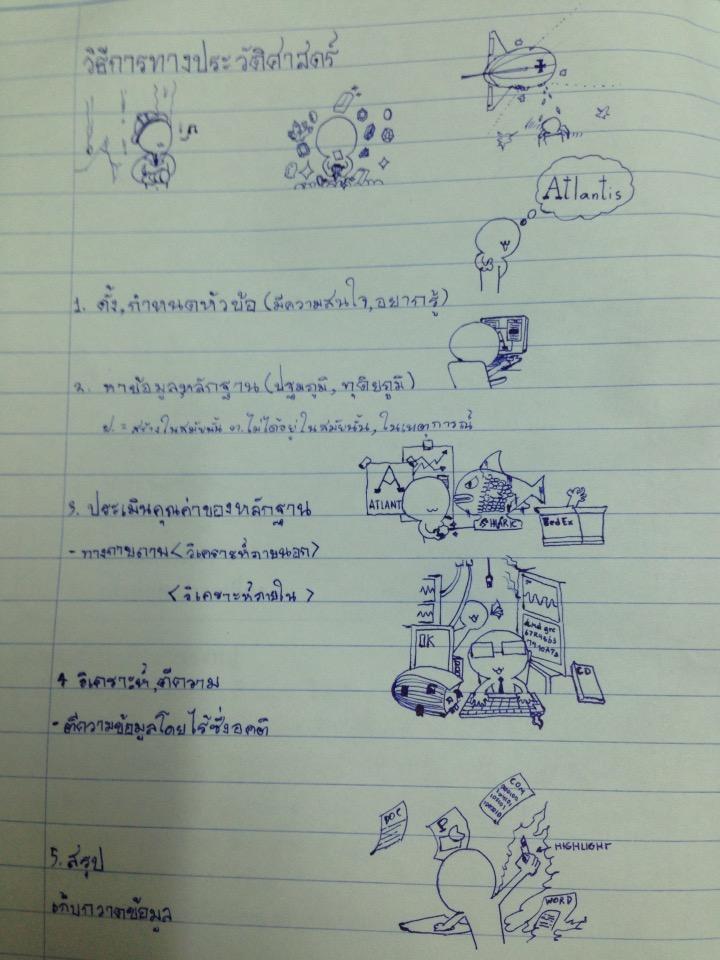 วิธีการทางประวัติศาสตร์
Atlantis
1. ตั้ง,กำหนดหัวข้อ (มีความสนใจ,อยากรู้)
2. หาข้อมูล,หลักฐาน (ปฐมภูมิ, ทุติยภูมิ)
ป. = สร้างในสมัยนั้น ท. ไม่ได้อยู่ในสมัยนั้น, ในเหตุการณ์
A
ATLANT
SHARK
3. ประเมินคุณค่าของหลักฐาน
- ทางกายภาพ <วิเคราะห์ภายนอก>
<วิเคราะห์ภายใน>
OK
CD
4 วิเคราะห์,ตีความ
- ตีความข้อมูลโดยไร้ซึ่งอคติ
COM
DOC
P
HIGHLIGHT
5. สรุป
WORD
เก็บกวาดข้อมูล